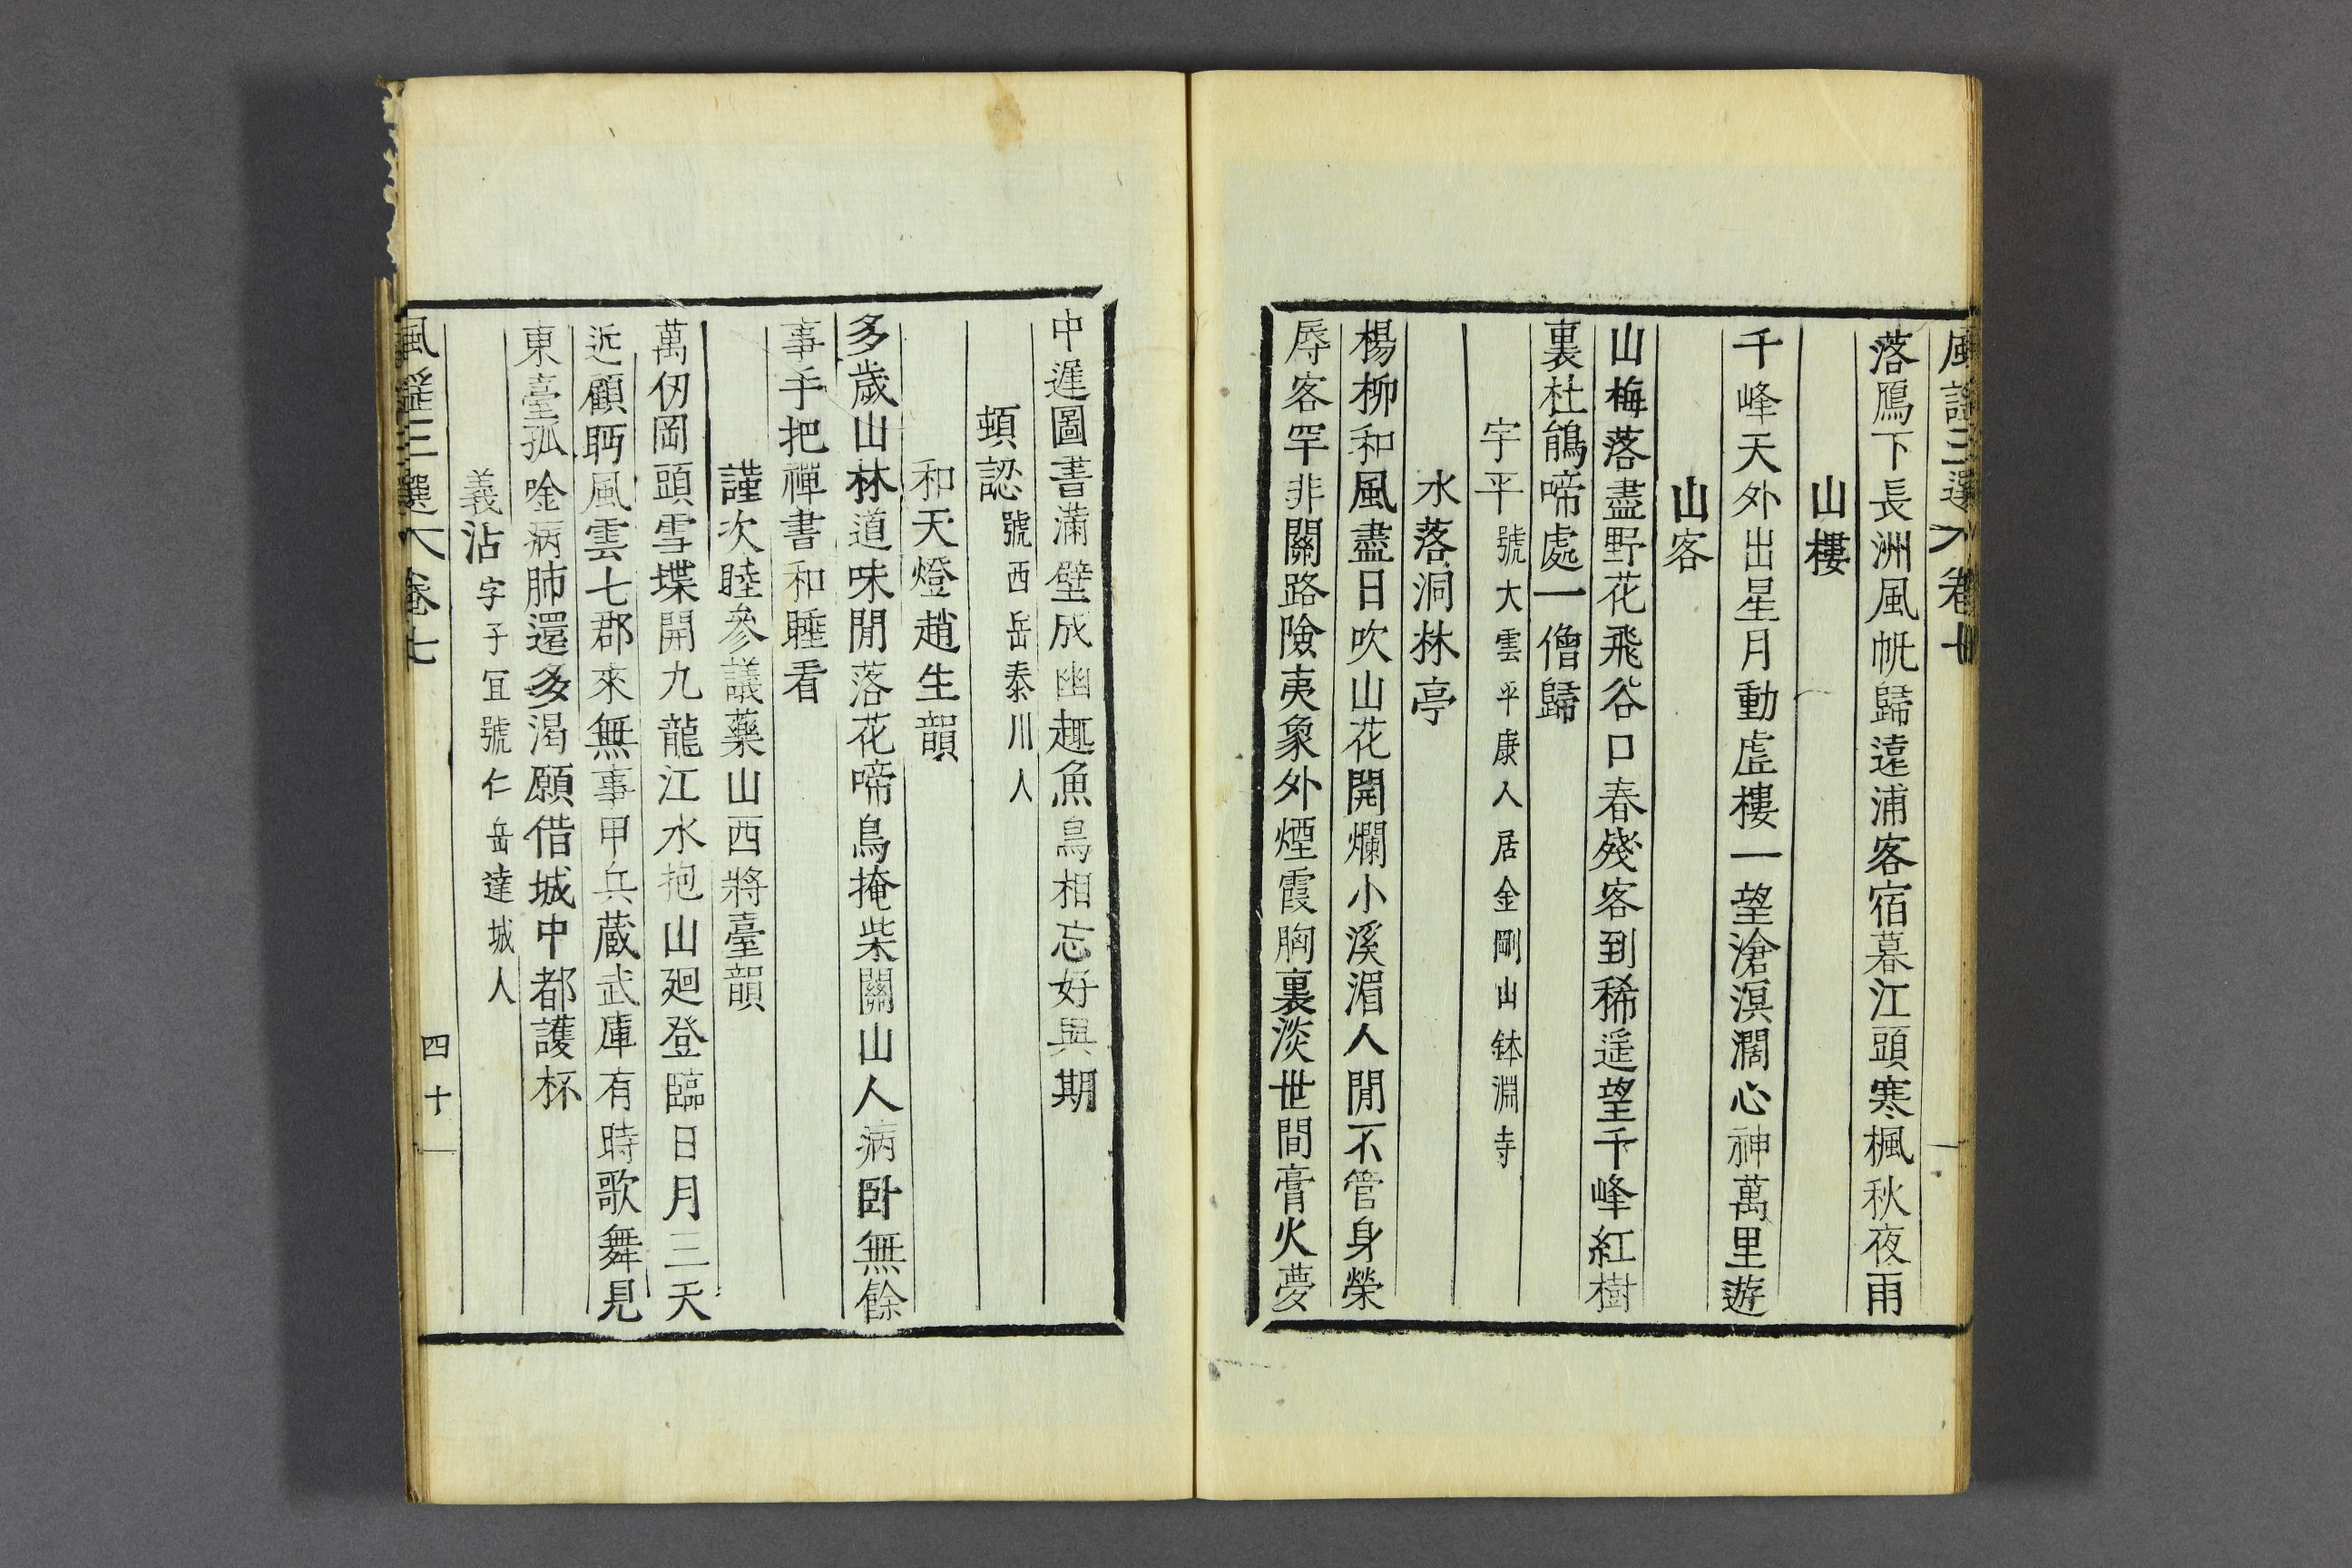 風謠三選 卷七
落鴈下長洲風帆歸遠浦客宿暮江頭寒楓秋夜雨
山樓
千峰天外出星月動虛樓一望滄溟濶心神萬里遊
山客
山梅落盡野花飛谷口春殘客到稀遥望千峰紅樹
裏杜鵑啼處一僧歸
宇平 號大雲平康人居金剛山鉢淵寺
水落洞林亭
楊柳和風盡日吹山花開爛小溪湄人閒不管身榮
辱客罕非關路險夷象外煙霞胸裏淡世間膏火夢
中遲圖書滿壁成幽趣魚鳥相忘好與期
頓認 號西岳泰川人
和天燈趙生韻
多歲山林道味閒落花啼鳥掩柴關山人病卧無餘
事手把禪書和睡看
謹次睦參議藥山西將臺韻
萬仞岡頭雪堞開九龍江水抱山廻登臨日月三天
近顧眄風雲七郡來無事甲兵蔵武庫有時歌舞見
東臺孤唫病肺還多渴願借城中都護杯
義沾 字子宜號仁岳達城人
風謠三選 卷七 四十